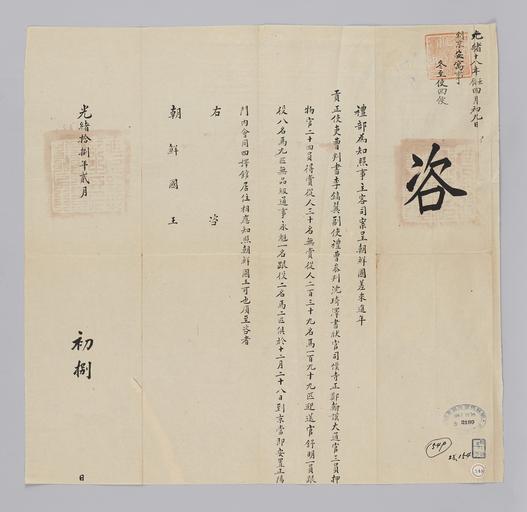 光緒十八年壬辰四月初九日
冬至使回便
咨
禮部爲知照事主客司案呈朝鮮國差來進年
貢正使吏曹判書李鎬翼副使禮曹參判沈琦澤書狀官司僕寺正鄭翰謨大通官三員押
物官二十四員得賞從人三十名無賞從人二百三十九名馬一百九十九匹迎送官舒明一員跟
役八名馬九匹無品級通事永魁一名跟役二名馬二匹俱於十二月二十八日到京當即安置正陽
門內會同四譯館居住相應知照朝鮮國王可也須至咨者
右咨
朝鮮國王
光緒拾捌年貳月
初捌
日
2180